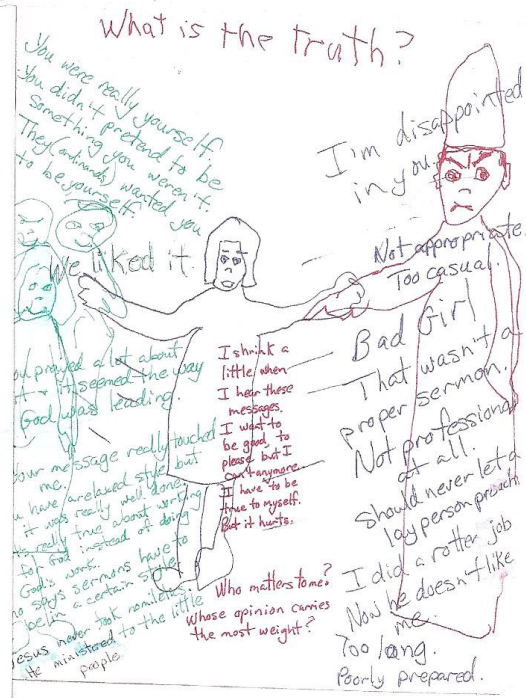 What is the truth?
You were really yourself.
You didn't pretend to be
something you weren't.
They (ordinands) wanted you
to be yourself.
We liked it.
prayed a lot about
it seemed the way
God was leading.
message really touched
me.
have a relaxed style but
it was really well done.
really true about working
for God instead of doing
God's work.
says sermons have to
be in a certain style
Jesus never took homiletics
He ministered to the little
people.
I shrink a
little when
I hear these
messages.
I want to
be good, to
please but I
can't anymore.
I have to be
true to myself.
But it hurts.
Who matters to me?
Whose opinion carries
the most weight?
I'm disappointed
in you.
Not appropriate.
Too casual.
Bad Girl
That wasn't a
proper sermon.
Not professional
at all.
Should never let a
lay person preach
I did a rotten job
Now he doesn't like
me.
Too long.
Poorly prepared.